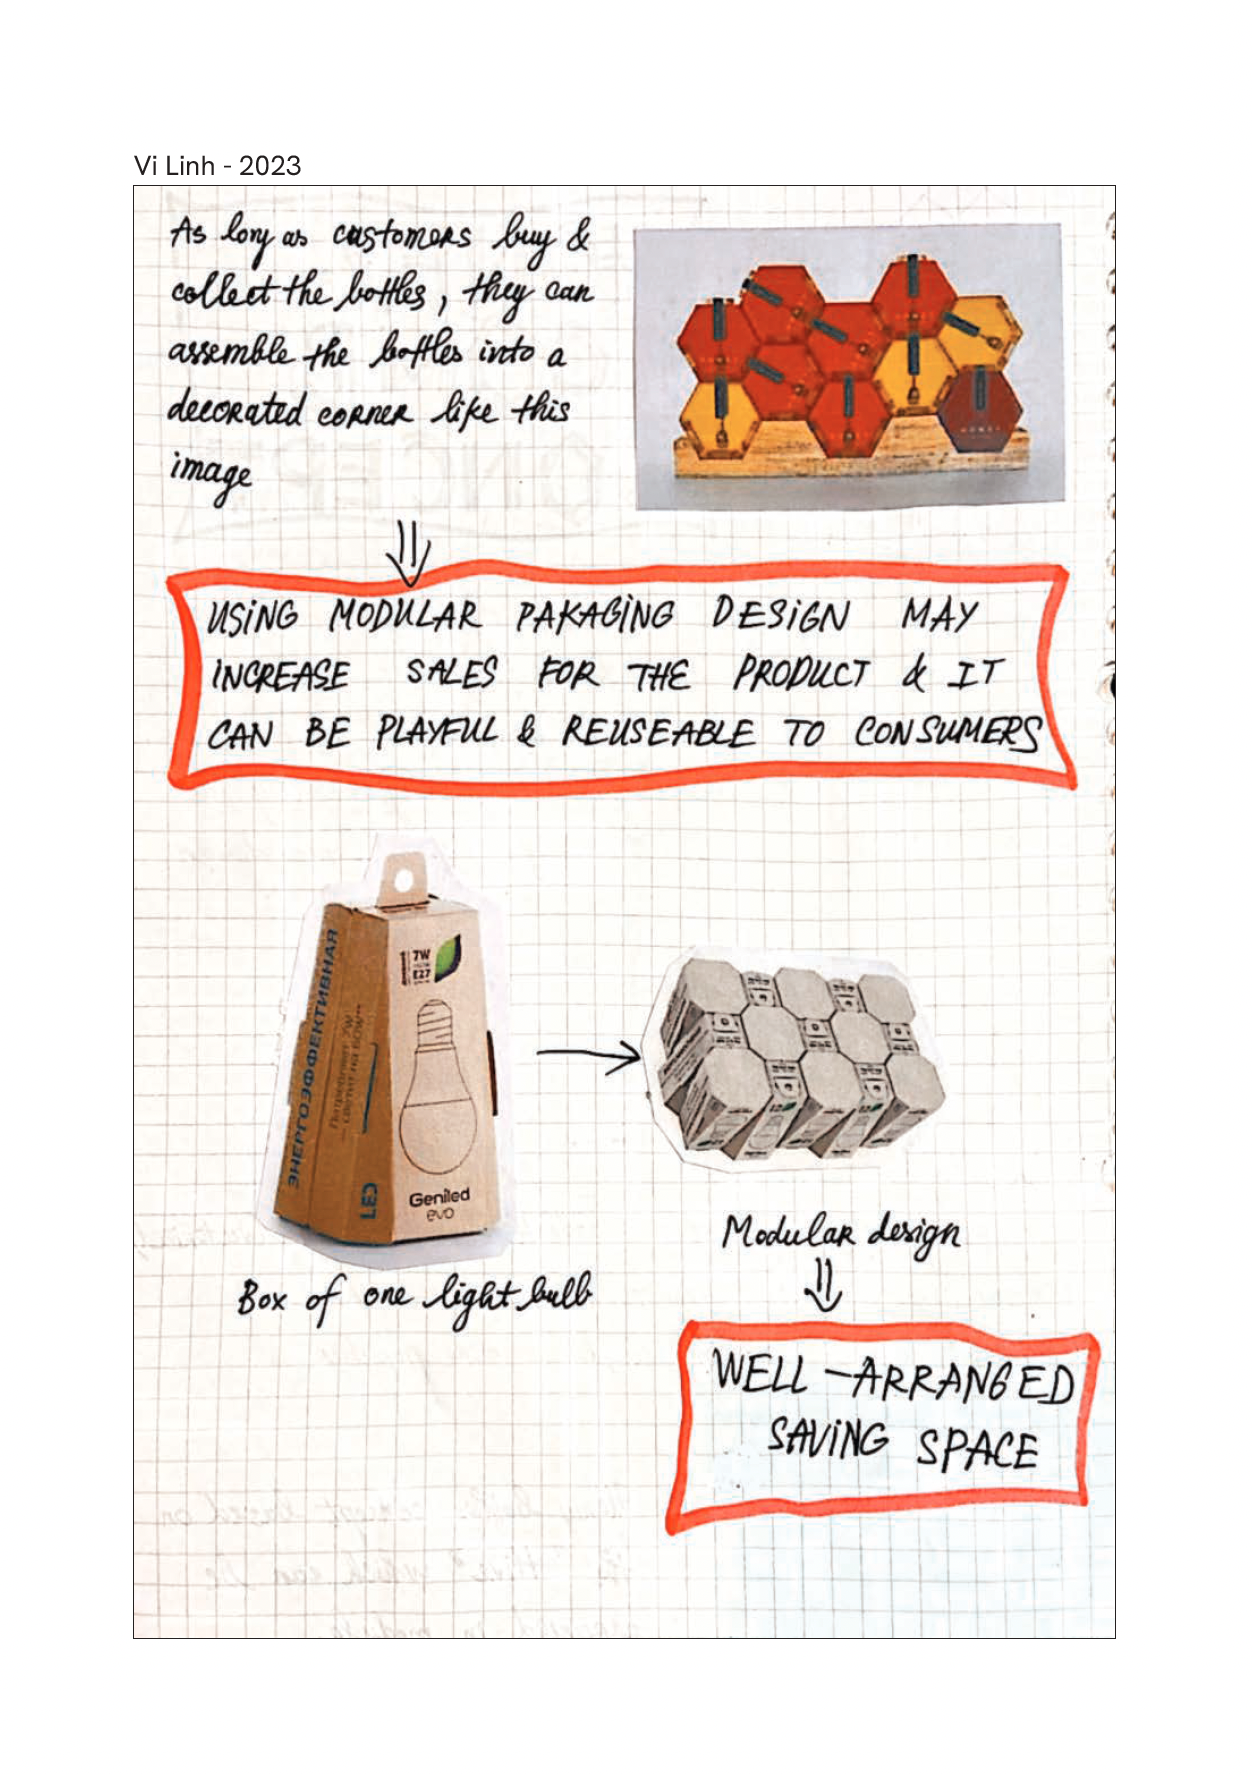 Vi Linh - 2023
As long as customers buy &
collect the bottles, they can
assemble the bottles into a
decorated corner like this
image
USING MODULAR PAKAGING DESIGN MAY
INCREASE SALES FOR THE PRODUCT & IT
CAN BE PLAYFUL & REUSEABLE TO CONSUMERS
ЭНЕРГОЭФФЕКТИВНАЯ
Потребляет 7W
LED
7W
E27
Geniled
evo
Box of one light bulb
Modular design
WELL-ARRANGED
SAVING SPACE